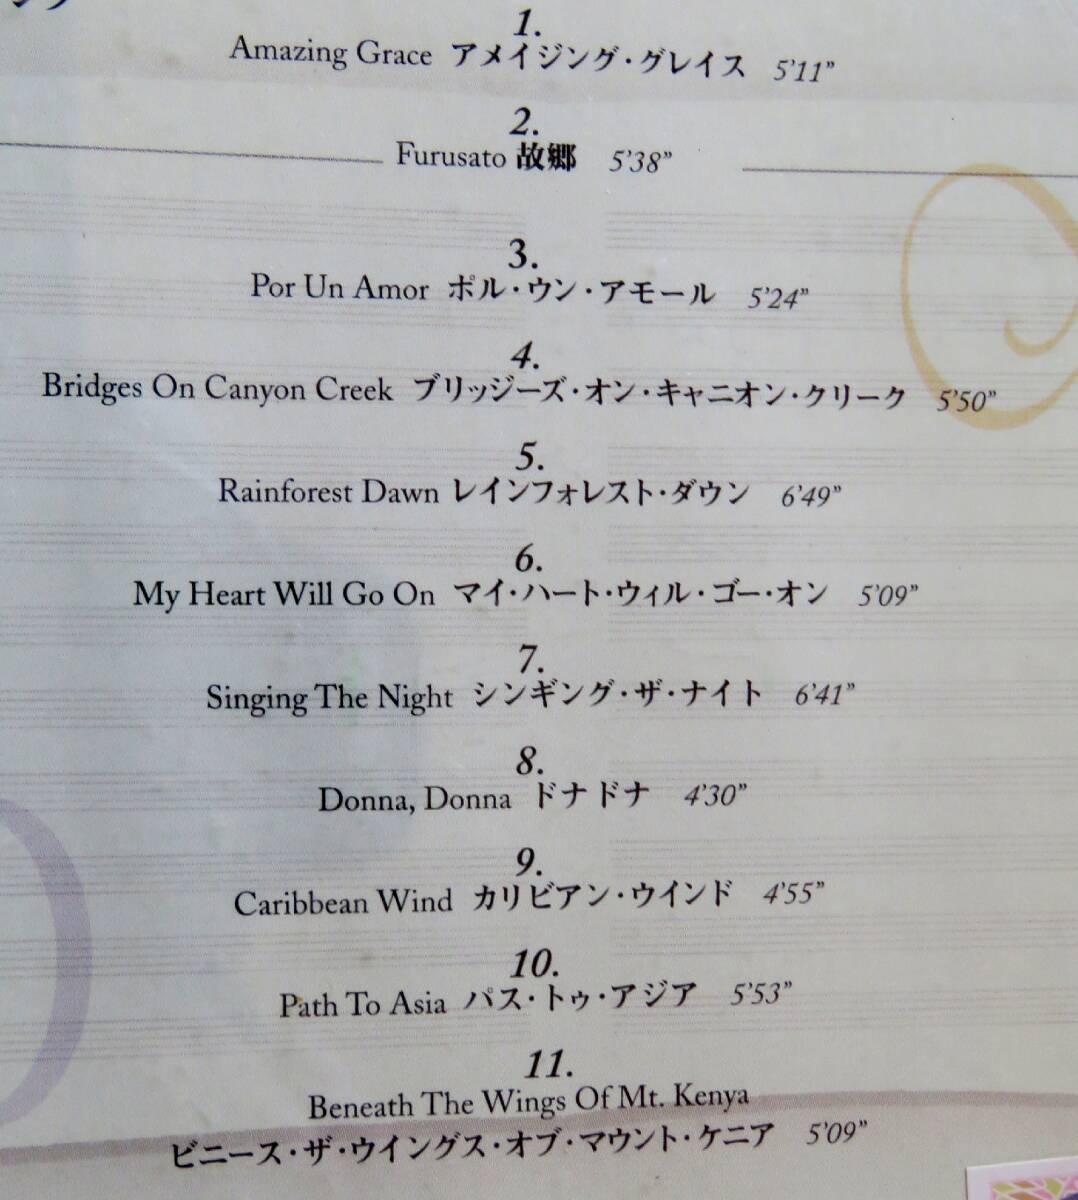 1.
Amazing Grace アメイジング・グレイス 5'11”
2.
Furusato 故郷 5'38”
3.
Por Un Amor ポル・ウン・アモール 5'24”
4.
Bridges On Canyon Creek ブリッジーズ・オン・キャニオン・クリーク 5'50”
5.
Rainforest Dawn レインフォレスト・ダウン 6'49”
6.
My Heart Will Go On マイ・ハート・ウィル・ゴー・オン 5'09”
7.
Singing The Night シンギング・ザ・ナイト 6'41”
8.
Donna, Donna ドナドナ 4'30”
9.
Caribbean Wind カリビアン・ウインド 4'55”
10.
Path To Asia パス・トゥ・アジア 5'53”
11.
Beneath The Wings Of Mt. Kenya
ビニース・ザ・ウイングス・オブ・マウント・ケニア 5'09”